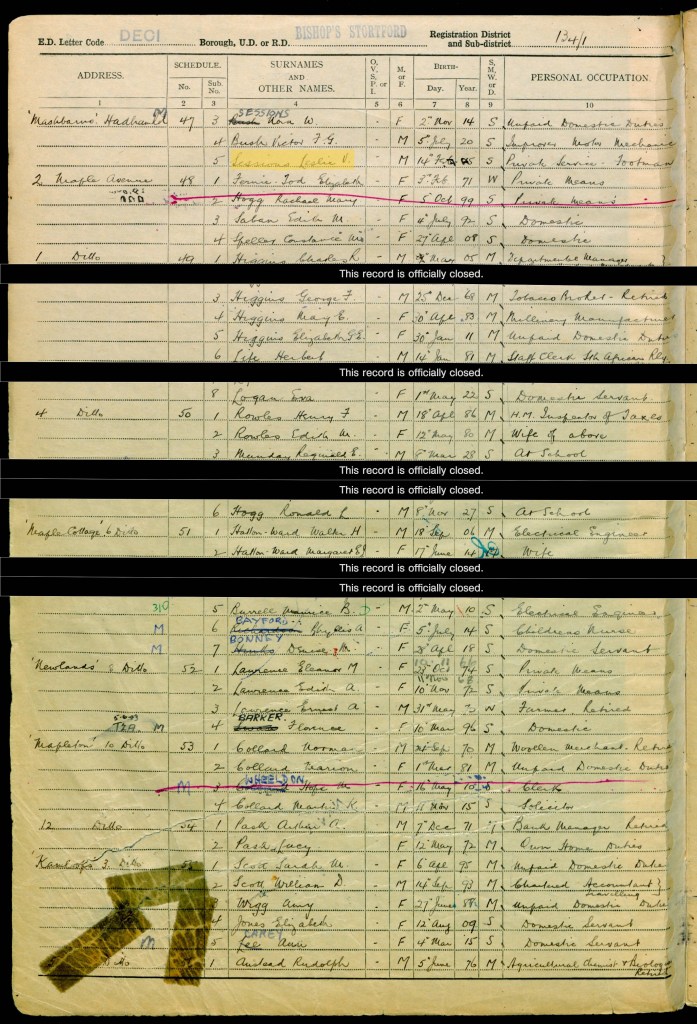 E.D. Letter Code DECI Borough, U.D. or R.D. BISHOP'S STORTFORD Registration District and Sub-district 134/1
ADDRESS. SCHEDULE. SURNAMES AND OTHER NAMES. O, V, S, P, or I. M. or F. BIRTH- S, M, W, or D. PERSONAL OCCUPATION.
No. Sub. No. Day. Year.
1 2 3 4 5 6 7 8 9 10
SESSIONS
Hadham M 47 3 Nora W. - F 2nd Nov 14 S Unpaid Domestic Duties
4 Bush Victor F.G. - M 5th July 20 S Improver Motor Mechanic
5 Sessions Leslie V. - M 14th S Private Service - Footman
2 Maple Avenue 48 1 Elizabeth - F 3rd Feb 71 W Private Means
2 Hogg Rachael Mary - F 5 Oct 99 S Private means
3 Saban Edith M. - F 4th July 92 S Domestic
4 Constance - F 27th Apl 08 S Domestic
1 Ditto 49 1 Higgins Charles R - M May 05 M Departmental Manager
This record is officially closed.
3 Higgins George F. - M 25th Dec 68 M Tobacco Broker - Retired
4 Higgins May E. - F 30th Apl 83 M Millinery Manufacturer
5 Higgins Elizabeth - F 30th Jan 11 M Unpaid Domestic Duties
6 Herbert - M 14th Jan 81 M Staff Clerk Sth African Rly.
This record is officially closed.
8 Logan Eva - F 1st May 22 S Domestic Servant.
4 Ditto 50 1 Rowles Henry F - M 18th Apl 86 M H.M. Inspector of Taxes
2 Rowles Edith M. - F 12th May 80 M Wife of above
3 Munday Reginald E. - M 8th Mar 28 S At School
This record is officially closed.
This record is officially closed.
6 Hogg Ronald - M 8th Nov 27 S At School
'Maple Cottage' 6 Ditto 51 1 Hatton-Ward Walter H - M 18th Sep 06 M Electrical Engineer
2 Hatton-Ward Margaret - F 17th June 14 Wife
This record is officially closed.
This record is officially closed.
5 Burrell Maurice B. - M 2nd May 10 S Electrical Engineer
BAYFORD
M 6 Phyllis A - F 5th July 14 S Childrens Nurse
BONNEY
M 7 Denise M. - F 28th Apl 18 S Domestic Servant
'Newlands' 8 Ditto 52 1 Lawrence Eleanor M - F Oct 74 S Private Means
2 Lawrence Edith A. - F 10th Nov 72 S Private Means
3 Lawrence Ernest A - M 31st May W Farmer Retired
BARKER.
M 4 Florence - F 10th Mar 96 S Domestic
'Mapleton' 10 Ditto 53 1 Collard Norman - M Sep 70 M Woollen Merchant - Retired
2 Collard Marion - F 1st Mar 81 M Unpaid Domestic Duties
WHEELDON
M 3 Collard Hope M - F 16th May 10 Clerk
4 Collard Martin K - M 11 Nov 15 S Solicitor
12 Ditto 54 1 Pash Arthur A. - M 7th Dec 71 M Bank Manager Retired
2 Pash Lucy - F 12th May 72 M Own Home Duties
3. Ditto 55 1 Scott Sarah M. - F 6th Apl 95 M Unpaid Domestic Duties
2 Scott William D. - M 14th Sep 93 M Chartered Accountant
travelling
3 Wigg Amy - F 27th June 88 M Unpaid Domestic Duties
4 Jones Elizabeth - F 12th Aug 09 S Domestic Servant
CAREY
M 5 Lee Ann - F 4th Mar 15 S Domestic Servant
Ditto 1 Anstead Rudolph - M 5th June 76 M Agricultural Chemist & Biologist
Retired